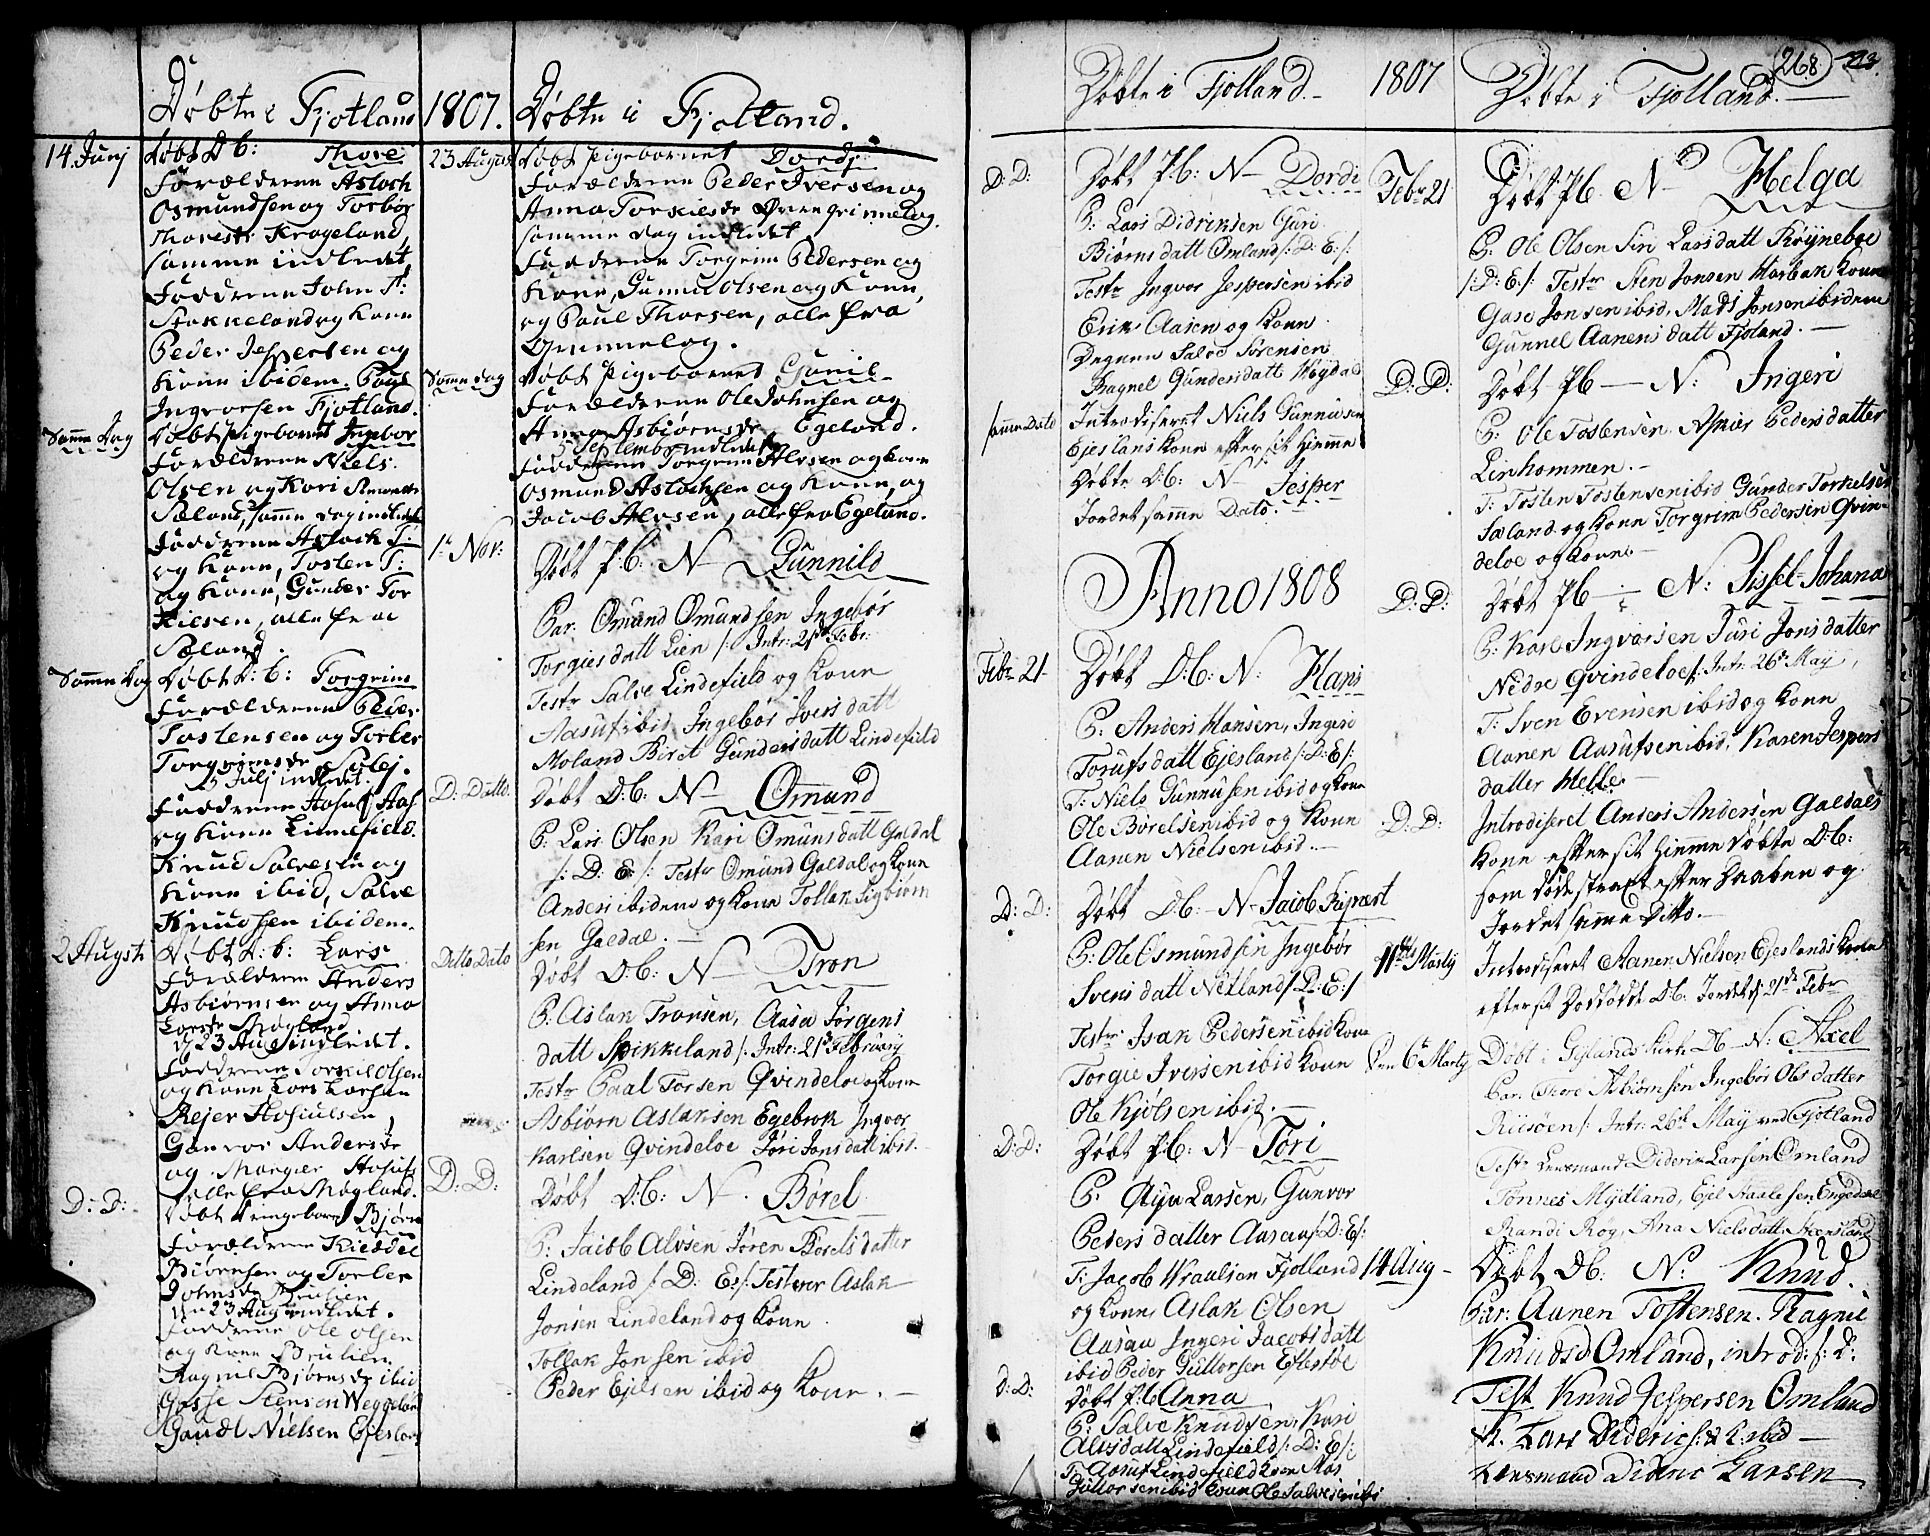 Døbte i Fjotland
14. Junj
Døbt D b: Thore
Forældrene Asloch
Osmundsen og Torbor
Thoresdr Krogeland,
samme indledt
Fadderne John T:
Stokkeland og Kone
Peder Jespersen og
Kone ibidem. Poul
Ingvorsen Fjotland.
Samme Dag
Døbt Pigebarnet Ingbor
Forældrene Niels
Olsen og Kari
Sæland, samme dag indledt
Fadderne Asloch T:
og Kone, Tosten T:
og Kone, Gunder Tor
Kilsen, alle fra
Sæland.
Samme Dag
Døbt D: b: Torgrim
Forældrene Peder
Tostensen og Torber
Torgrimsdr
5 Julj indledt.
Fadderne Aasul Aas
og Kone Lindefield.
Knud Salvesen og
Kone ibid, Salve
Knudsen ibidem.
2 Augsti
Døbt D: b: Lars
Forældrene Anders
Asbiørnsen og Anna
Larsdr Møgland
d 23 Aug indledt.
Fadderne Torskil Olsen
og Kone Lars Larsen
Rejer Aasulsen,
Gunvor Andersdr
og Margier Aasuls
alle fra Møgland.
D: D:
Døbt Drengebarn Bjørn
Forældrene Kieddel
Biørnsen og Torber
Johnsdr Brulien
den 23 Aug indledt.
Fadderne Ole Olsen
og Kone Brulien
Ragnil Bjørnsdr ibid
Gosse Stensen Weggeland
Gaudl Nielsen Ejesland
1807. Døbte i Fjotland.
23 August
Døbt Pigebarnet Dordj
Forældrene Peder Iversen og
Anna Torkilsdr Øvre grimmelog.
samme dag indledt
Fadderne Torgrim Pedersen og
Kone, Gunnu Olsen og Kone,
og Paul Thorsen, alle fra
Grimmelog.
Samme dag
Døbt Pigebarnet Gunil
Forældrene Ole Johnsen og
Anna Asbiørnsdr, Egeland.
5 Septembr indledt
Fadderne Torgrim Alvsen og Kone
Osmund Aslochsen og Kone, og
Jacob Alvsen, alle fra Egeland.
1: Nov:
Døbt P: b: N Gunnild
Par. Omund Omundsen Ingebør
Torgiesdatt Lien /: Intr: 21de Febr:
Testr Salve Lindefield og Kone
Aasuf ibid Ingebør Iversdatt
Moland Biret Gundersdatt Lindefield
D: Datto.
Døbt D: b: N Omund
P: Lars Olsen Kari Omunsdatt Galdal
/: D: E: /: Testr Omund Galdal og Kone
Anders ibidem og Kone Tollak Sigbiørn
sen Galdal.
Ditto Dato
Døbt D: b: N Tron
P: Aslak Tronsen, Aasa Jørgens
datt Spikkeland /: Intr: 21 Februarij
Testr Paal Torsen Qvindeloe og Kone
Asbiørn Aslaksen Egebrok Ingvor
Karlsen Qvindeloe Jøri Jonsdatt ibid.
D: D:
Døbt D: b: N. Børel
P: Jacob Alvsen Jøren Børelsdatter
Lindeland /: D: E: /: Testr ver Aslak
Jonsen Lindeland og Kone
Tollak Jonsen ibid
Peder Ejelsen ibid og Kone.
Døbte i Fjolland. 1807
D: D:
Døbt P: b: N Dordi
P: Lars Didriksen Guri
Biørnsdatt Omland /: D: E: /:
Testr Ingvor Jespersen ibid
Erik Aasen og Kone
Degnen Saloe Sørensen
Ragnel Gundersdatt Høgdal
samme Dato
Introdiseret Niels Gunnusen
Ejeslans Kone efter sit hiemme
Døbte D: b: N Jesper
Jordet samme Dato.
Anno 1808
Febr 21
Døbt D: b: N: Hans
P: Anders Hansen, Ingeri
Torufsdatt Ejesland /: D: E /:
T: Niels Gunnusen ibid og Kone
Ole Børelsen ibid og Kone
Aanen Nielsen ibid.
D: D:
Døbt D: b: N Jacob Ripvest
P: Ole Osmundsen Ingebør
Svensdatt Netland /: D: E: /
Testr: Isak Pedersen ibid Kone
Torgie Iversen ibid Kone
Ole Kjølsen ibid.
D: D:
Døbt P: b: N Tori
P. Larsen, Gunvor
Peders datter Aasau /: D: E /:
T: Jacob Fjolland
og Kone, Aslak Olsen
Aasau Ingeri Jacobsdatt
ibid Peder Guttorsen Eftestøl
D: D:
Døbt P: b Anna
P: Salve Knudsen, Kari
Alvsdatt Lindefield /: D: E /:
T: Aasuf Lindefield Kone
Guttorsen ibid Kone Ole Salvesen ibi
268
Døbte i Fjolland.
Febr 21
Døbt Pb. N Helga
P: Ole Olsen Siri Larsdatt Røyneboe
/: D: E /: Testr Sten Jonsen Kone
Gase Jonsen ibid, Mads Jonsen ibidem
Gunnel Aanensdatt Fjoland.
D: D:
Døbt Pb N: Ingeri
P: Ole Tostensen, Pedersdatter
Linhommen.
T: Tosten Tostensen ibid Gunder Torkelsen
Sæland og Kone Torgrim Pedersen Qvin
deloe og Kone
D: D:
Døbt Pb N: Sissel Johana
P: Karl Ingvorsen Juri Jonsdatter
Nedre Qvindeloe /: Intr: 26de Maij
T: Sven Evensen ibid og Kone
Aanen Aasufsen ibid, Karen Jespers
datter Helle
D: D:
Introdiseret Anders Andersen Galdals
Kone efter sit hiemme Døbte D b:
som døde straxt efter Daaben og
Jordet samme Ditto.
11te Martij
Introdiseret Aanen Nielsen Ejeslands Kone
efter sit Dødfødde Db. Jordet d 21de Febr
Den 6te Martij
Døbt i Gylands Kirke Db N: Axel
Par. Tore Asbiørnsen Ingebør Olsdatter
Riisøen /: Intr: 26de Maij ved Fjotland
Testr Lensmand Diderik Larsen Omland
Tønnes Mydland, Ejel Staalesen Engedal
Randi Røy, Ana Nielsdatt
14 Aug
Døbt Db: N: Knud.
Par: Aanen Tostensen. Ragnil
Knudsd Omland, introd: /: d:
Test Knud Jespersen Omland
K. Lars Diderichs: & K: ibid
Lensmand Didric Larsen